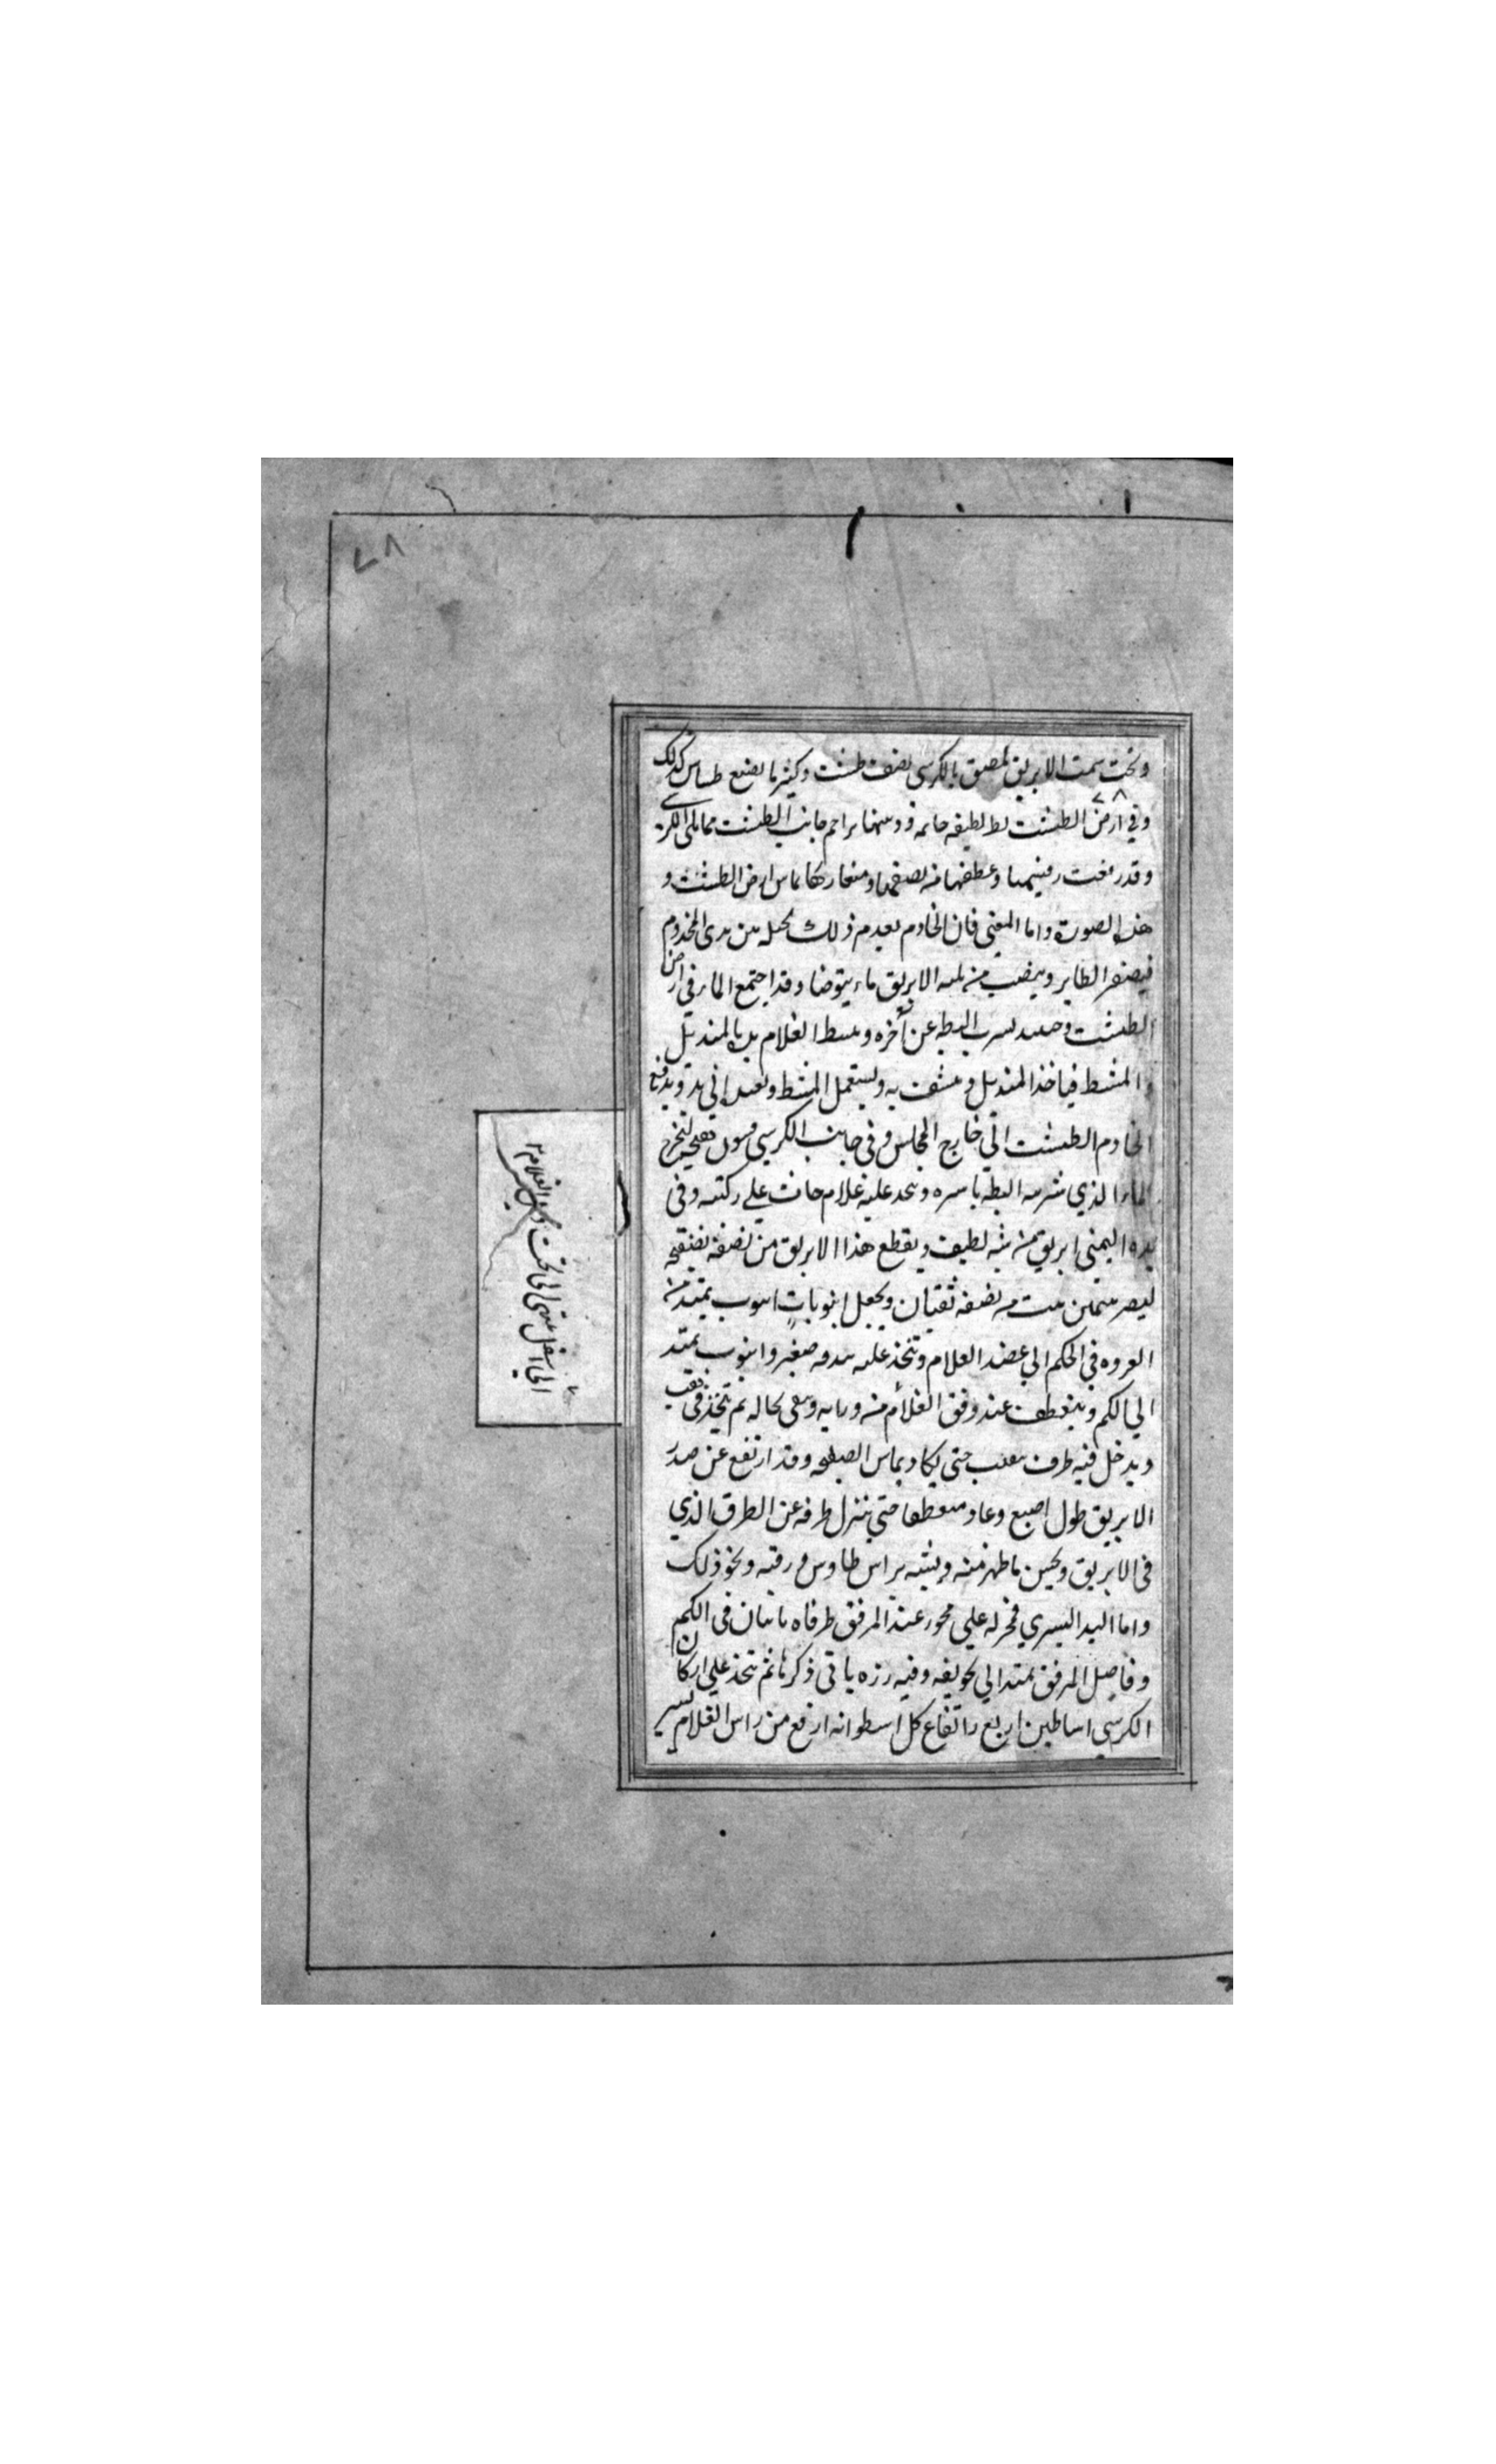 ٧٨
وتحت سمت الابريق ملصق بالكرسى نصف طشت وكثيرما يصنع طساس كذلك
٧٨
وفي ارض الطشت بط لطيفه جاثمه وذنبها يزاحم جانب الطشت ممايلى الكرسي
وقد رفعت وعطفها منه نصفها ومنقارها يماس ارض الطشت و
هذه الصورة واما المعنى فان الخادم يقدم ذلك يحمله بين يدى المخدوم
فيصفر الطاير وينصب من بلبله الابريق ماء يتوضا وقد اجتمع الماء في ارض
الطشت وحينئذ يشرب البطه عن آخره ويبسط الغلام يده بالمنديل
والمشط فياخذ المنديل وينشف به ويستعمل المشط ويعيده الى يده ويدفع
الخادم الطشت الي خارج المجلس وفي جانب الكرسي فيخرج
الماء الذي شربه البطه باسره ويتخذ عليه غلام جاث علي ركبته وفى
يده اليمني ابريق من شبه لطيف ويقطع هذا الابريق من نصفه بصفيحه
ليصير بيتين بيت من نصفه ثقبان ويجعل انبوبات انبوب يمتد من
العروه في الكم الي عضد الغلام ويتخذ عليه بندقه صغير وانبوب يمتد
الي الكم وينعطف عند مرفق الغلام منه ويبقى بحاله ثم يتخذ في ثقب
ويدخل فيه طرف حتى يكاد يماس الصفيحه وقد ارتفع عن صدر
الابريق طول اصبع وعاد منعطفا حتي ينزل طرفه عن الطرف الذي
فى الابريق ويحسن ما ظهر منه ويشبه براس طاوس ورقبته ونحو ذلك
واما اليد اليسري فمحركه علي محور عند المرفق طرفاه ثابتان فى الكم
وفاصل المرفق يمتد الي تجويفه وفيه رزه ياتى ذكرها ثم يتخذ علي اركان
الكرسي اساطين اربع وارتفاع كل اسطوانه ارفع من راس الغلام يسير
الي اسفل الي تحت الغلام